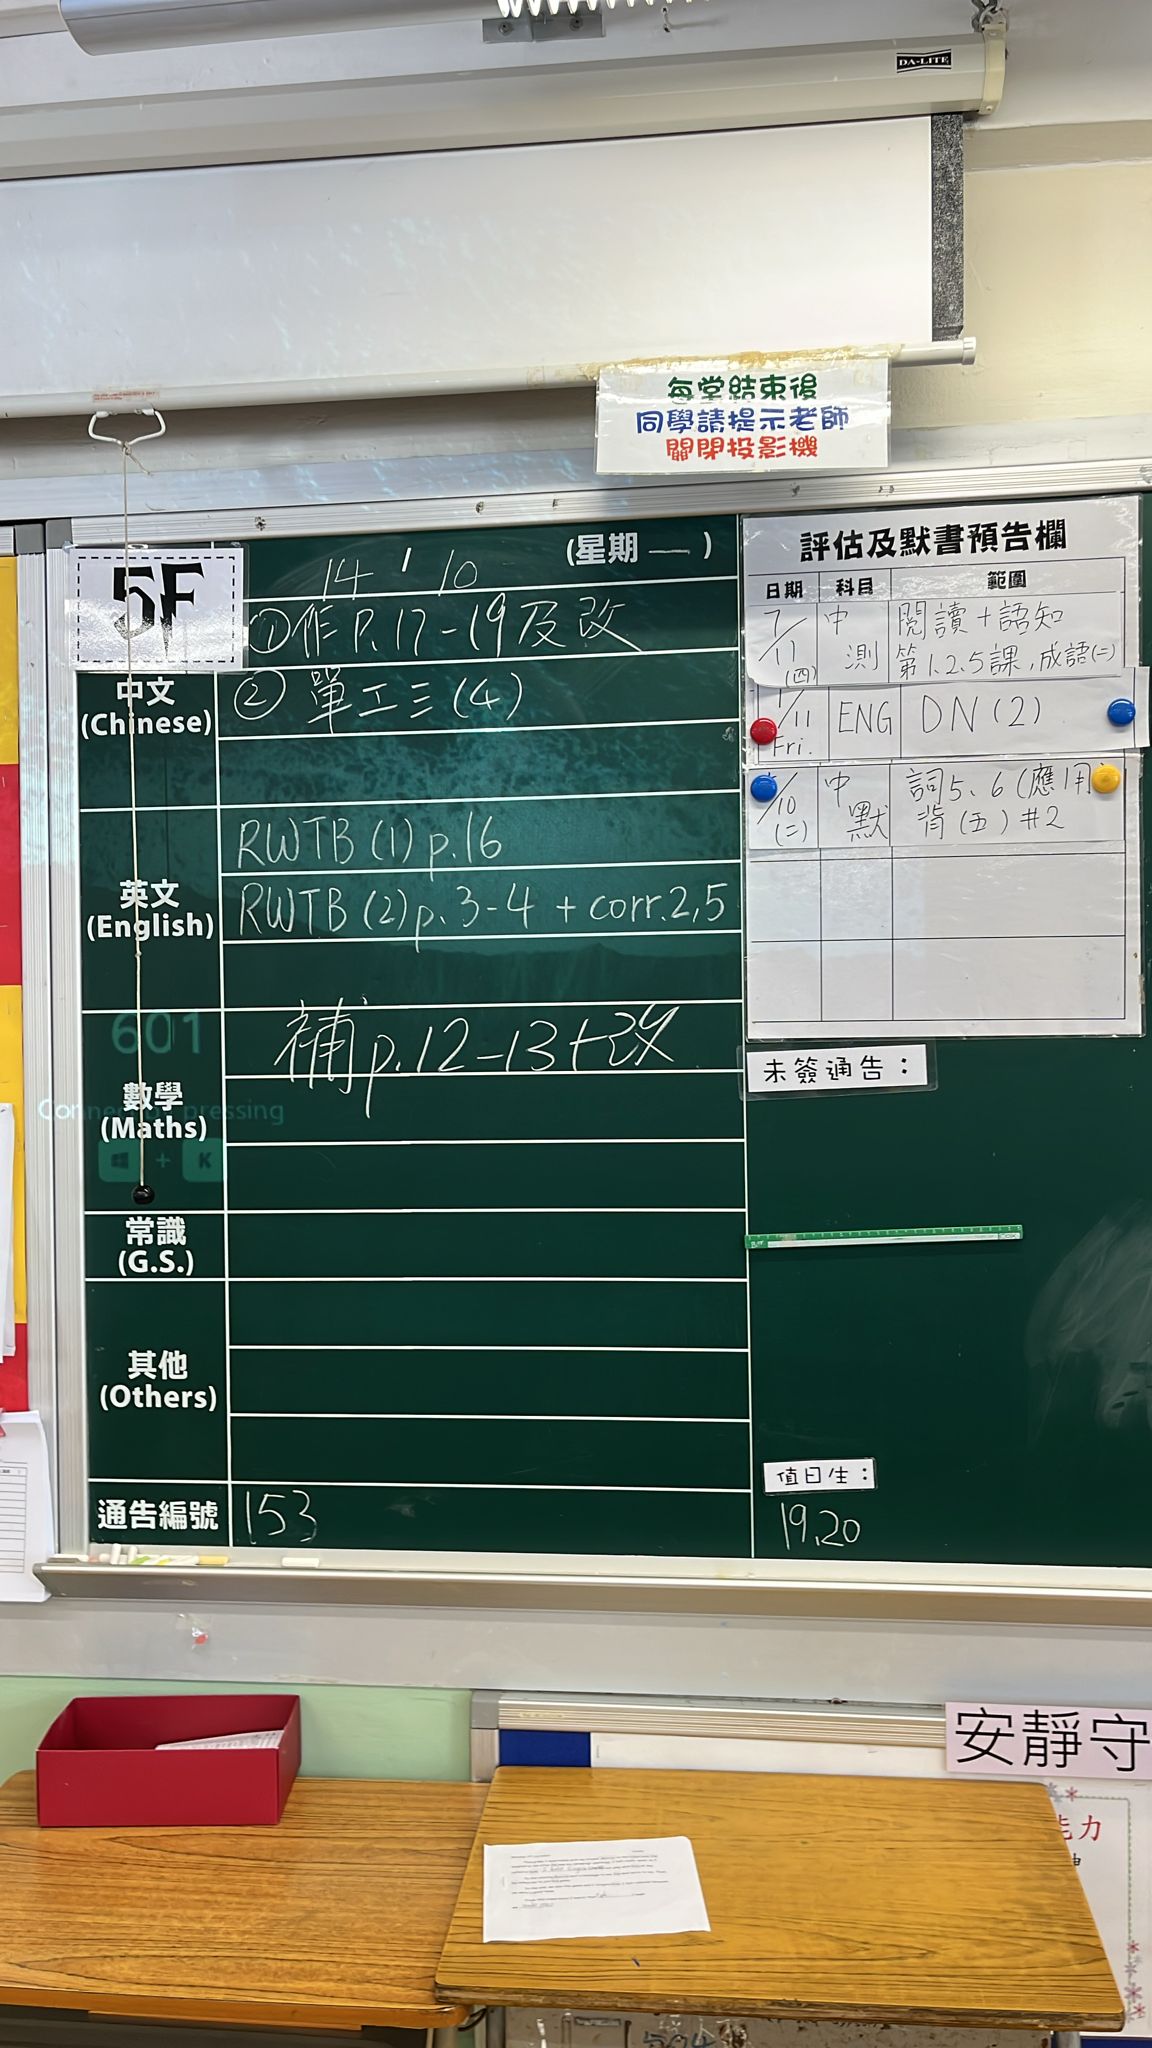 DA-LITE
每堂結束後
同學請提示老師
關閉投影機
5F
14 / 10
(星期一)
中文
(Chinese)
①作P.17-19及改
② 單工三(4)
英文
(English)
RWTB (1) p.16
RWTB (2) p.3-4 + corr.2,5
601
數學
(Maths)
補 p.12-13+改
pressing
+ K
常識
(G.S.)
其他
(Others)
通告編號
153
評估及默書預告欄
日期 科目 範圍
7/11 (四) 中測 閱讀+語知
第1.2.5課,成語(二)
1/11 Fri. ENG DN (2)
/10 (二) 中默 詞5、6(應用)
背(五)#2
未簽通告：
值日生：
19,20
安靜守
能力